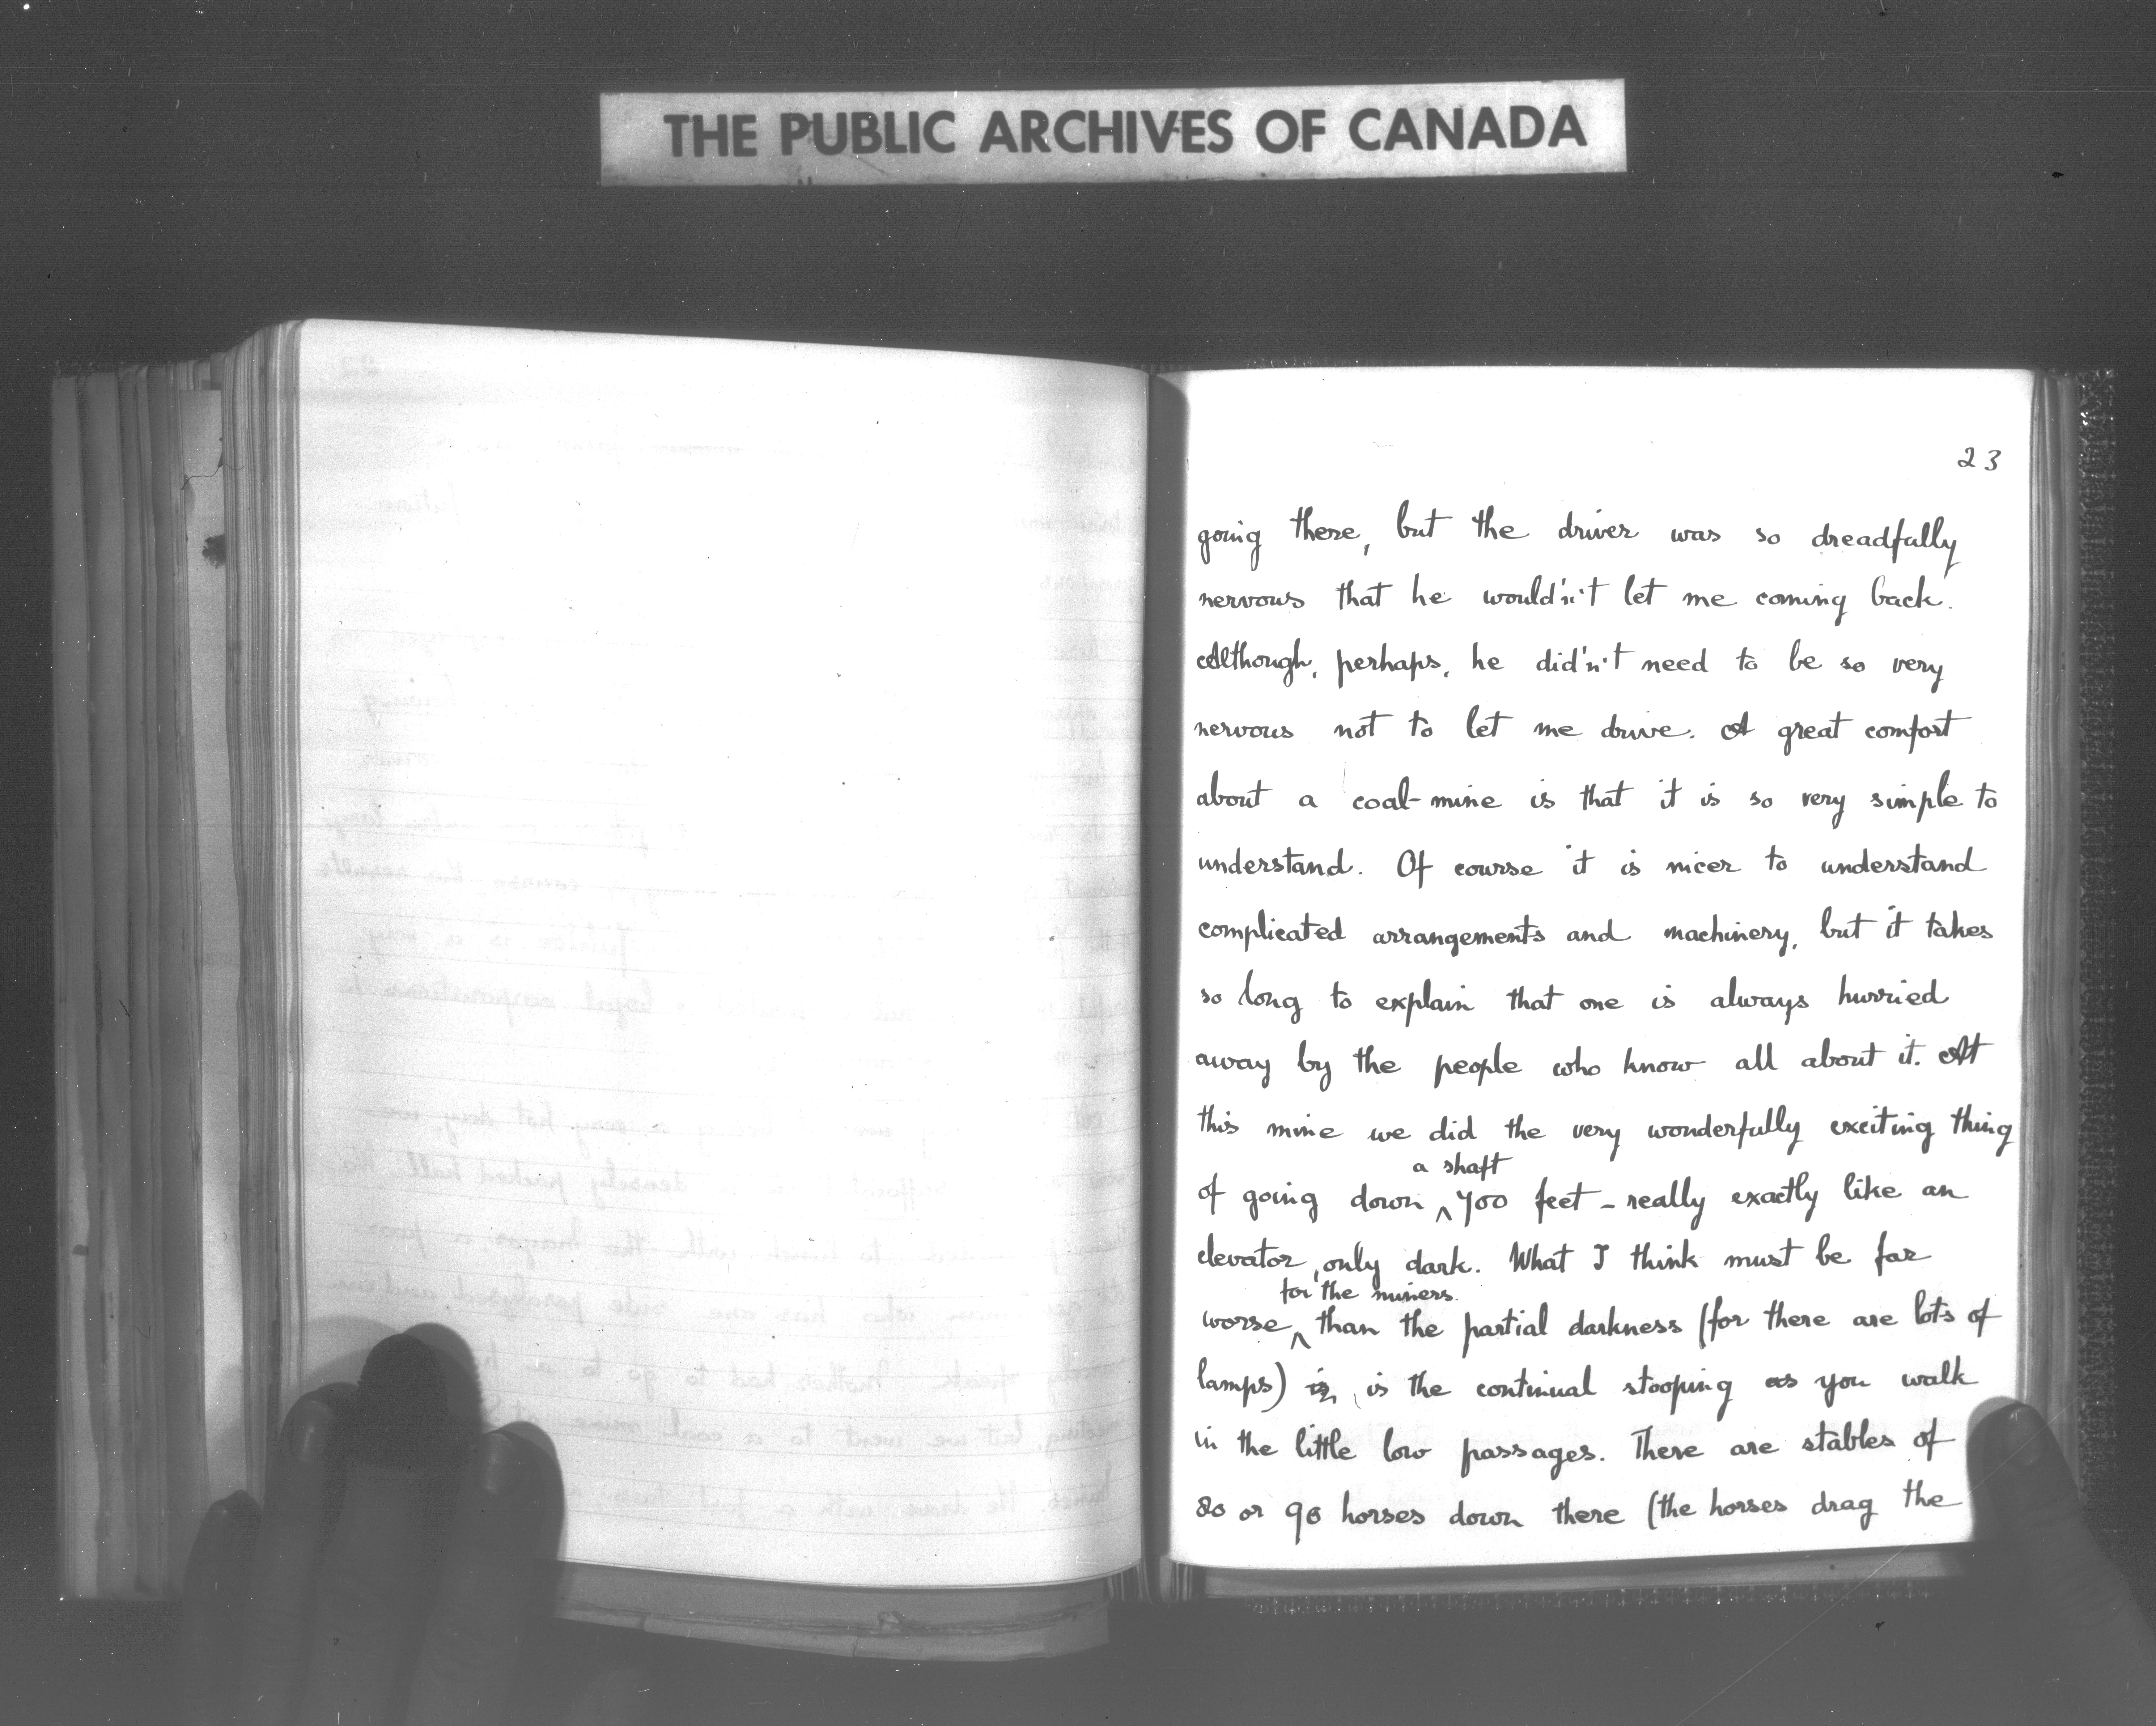 THE PUBLIC ARCHIVES OF CANADA
23
going there, but the driver was so dreadfully
nervous that he would'n't let me coming back.
Although, perhaps, he did'n't need to be so very
nervous not to let me drive. A great comfort
about a coal-mine is that it is so very simple to
understand. Of course it is nicer to understand
complicated arrangements and machinery, but it takes
so long to explain that one is always hurried
away by the people who know all about it. At
this mine we did the very wonderfully exciting thing
a shaft
of going down ^ 700 feet - really exactly like an
elevator, only dark. What I think must be far
for the miners
worse ^ than the partial darkness (for there are lots of
lamps) is the continual stooping as you walk
in the little low passages. There are stables of
80 or 90 horses down there (the horses drag the